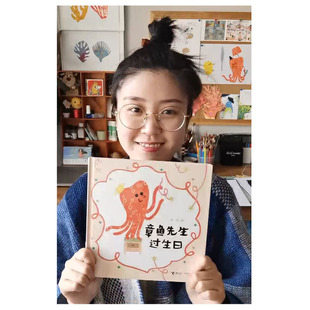 章鱼先生
过生日